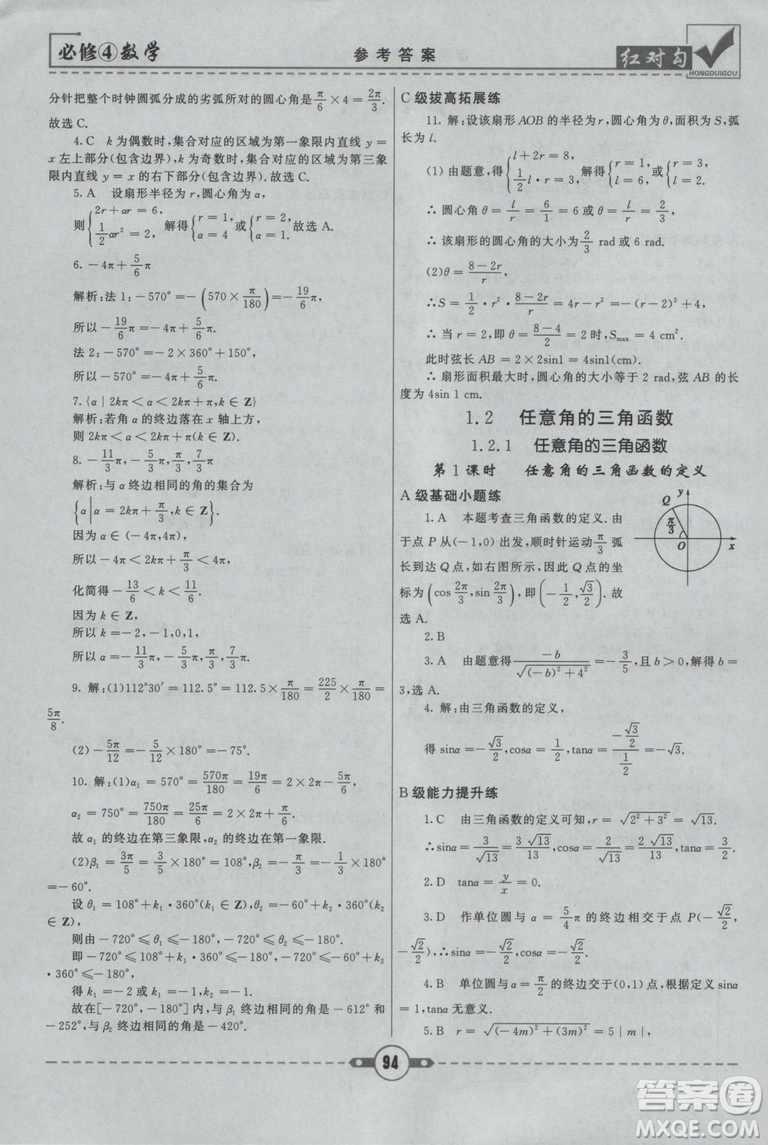 必修④数学
参考答案
红对勾
HONGDUIGOU
分针把整个时钟圆弧分成的劣弧所对的圆心角是π/6×4=2π/3.
故选C.
4.C k为偶数时,集合对应的区域为第一象限内直线y=
x左上部分(包含边界),k为奇数时,集合对应的区域为第三象
限内直线y=x的右下部分(包含边界).故选C.
5.A 设扇形半径为r,圆心角为α,
则{2r+αr=6, 1/2αr²=2, 解得{r=1, α=4 或{r=2, α=1. 故选A.
6.-4π+5/6π
解析:法1:-570°=-(570×π/180)=-19/6π,
所以-19/6π=-4π+5/6π.
法2:-570°=-2×360°+150°,
所以-570°=-4π+5/6π.
7.{α|2kπ<α<2kπ+π,k∈Z}
解析:若角α的终边落在x轴上方,
则2kπ<α<2kπ+π(k∈Z).
8.-11/3π,-5/3π,π/3,7/3π
解析:与α终边相同的角的集合为
{α|α=2kπ+π/3,k∈Z}.
因为α∈(-4π,4π),
所以-4π<2kπ+π/3<4π,
化简得-13/6<k<11/6.
因为k∈Z,
所以k=-2,-1,0,1,
所以α=-11/3π,-5/3π,π/3,7/3π.
9.解:(1)112°30′=112.5°=112.5×π/180=225/2×π/180=
5π/8.
(2)-5π/12=-5/12×180°=-75°.
10.解:(1)α₁=-570°=-570π/180=-19π/6,
α₂=750°=750π/180=25π/6=2×2π+π/6.
故α₁的终边在第二象限,α₂的终边在第一象限.
(2)β₁=3π/5=3/5×180°=108°,β₂=-π/3=-1/3×180°
=-60°.
设θ₁=108°+k₁·360°(k₁∈Z),θ₂=-60°+k₂·360°(k₂
∈Z),
则由-720°≤θ₁≤-180°,-720°≤θ₂≤-180°,
即-720°≤108°+k₁·360°≤-180°,-720°≤-60°+k₂
·360°≤-180°,
得k₁=-2或k₁=-1,k₂=-1.
故在[-720°,-180°]内,与β₁终边相同的角是-612°和
-252°,与β₂终边相同的角是-420°.
C级拔高拓展练
11.解:设该扇形AOB的半径为r,圆心角为θ,面积为S,弧
长为l.
(1)由题意,得{l+2r=8, 1/2l·r=3, 解得{l=6, r=1 或{l=2, r=3,
∴圆心角θ=l/r=6/1=6或θ=l/r=2/3,
∴该扇形的圆心角的大小为2/3 rad或6 rad.
(2)θ=(8-2r)/r,
∴S=1/2·r²·(8-2r)/r=4r-r²=-(r-2)²+4,
∴当r=2,即θ=(8-4)/2=2时,Smax=4 cm².
此时弦长AB=2×2sin1=4sin1(cm).
∴扇形面积最大时,圆心角的大小等于2 rad,弦AB的长
度为4sin 1 cm.
1.2 任意角的三角函数
1.2.1 任意角的三角函数
第1课时 任意角的三角函数的定义
A级基础小题练
1.A 本题考查三角函数的定义.由
于点P从(-1,0)出发,顺时针运动π/3弧
长到达Q点,如右图所示,因此Q点的坐
标为(cos2π/3,sin2π/3),即(-1/2,√3/2).故
选A.
Q y π/3 O x
2.B
3.A 由题意得-b/√((-b)²+4²)=-3/5,且b>0,解得b=
3,选A.
4.解:由三角函数的定义,
得sinα=-√3/2,cosα=-1/2,tanα=(-√3/2)/(-1/2)=√3.
B级能力提升练
1.C 由三角函数的定义可知,r=√(2²+3²)=√13.
∴sinα=3/√13=3√13/13,cosα=2/√13=2√13/13.
2.D tanα=y/x=0.
3.D 作单位圆与α=5/4π的终边相交于点P(-√2/2,
-√2/2),∴sinα=-√2/2,cosα=-√2/2,tanα=1.
4.B 单位圆与α=π/2的终边交于(0,1)点,根据定义sinα
=1,tanα无意义.
5.B r=√((-4m)²+(3m)²)=5|m|,
94
答案圈
MXQE.COM